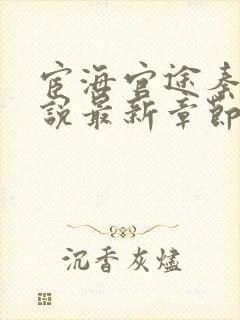 宦海官途秦
說最新章節
沉香灰燼